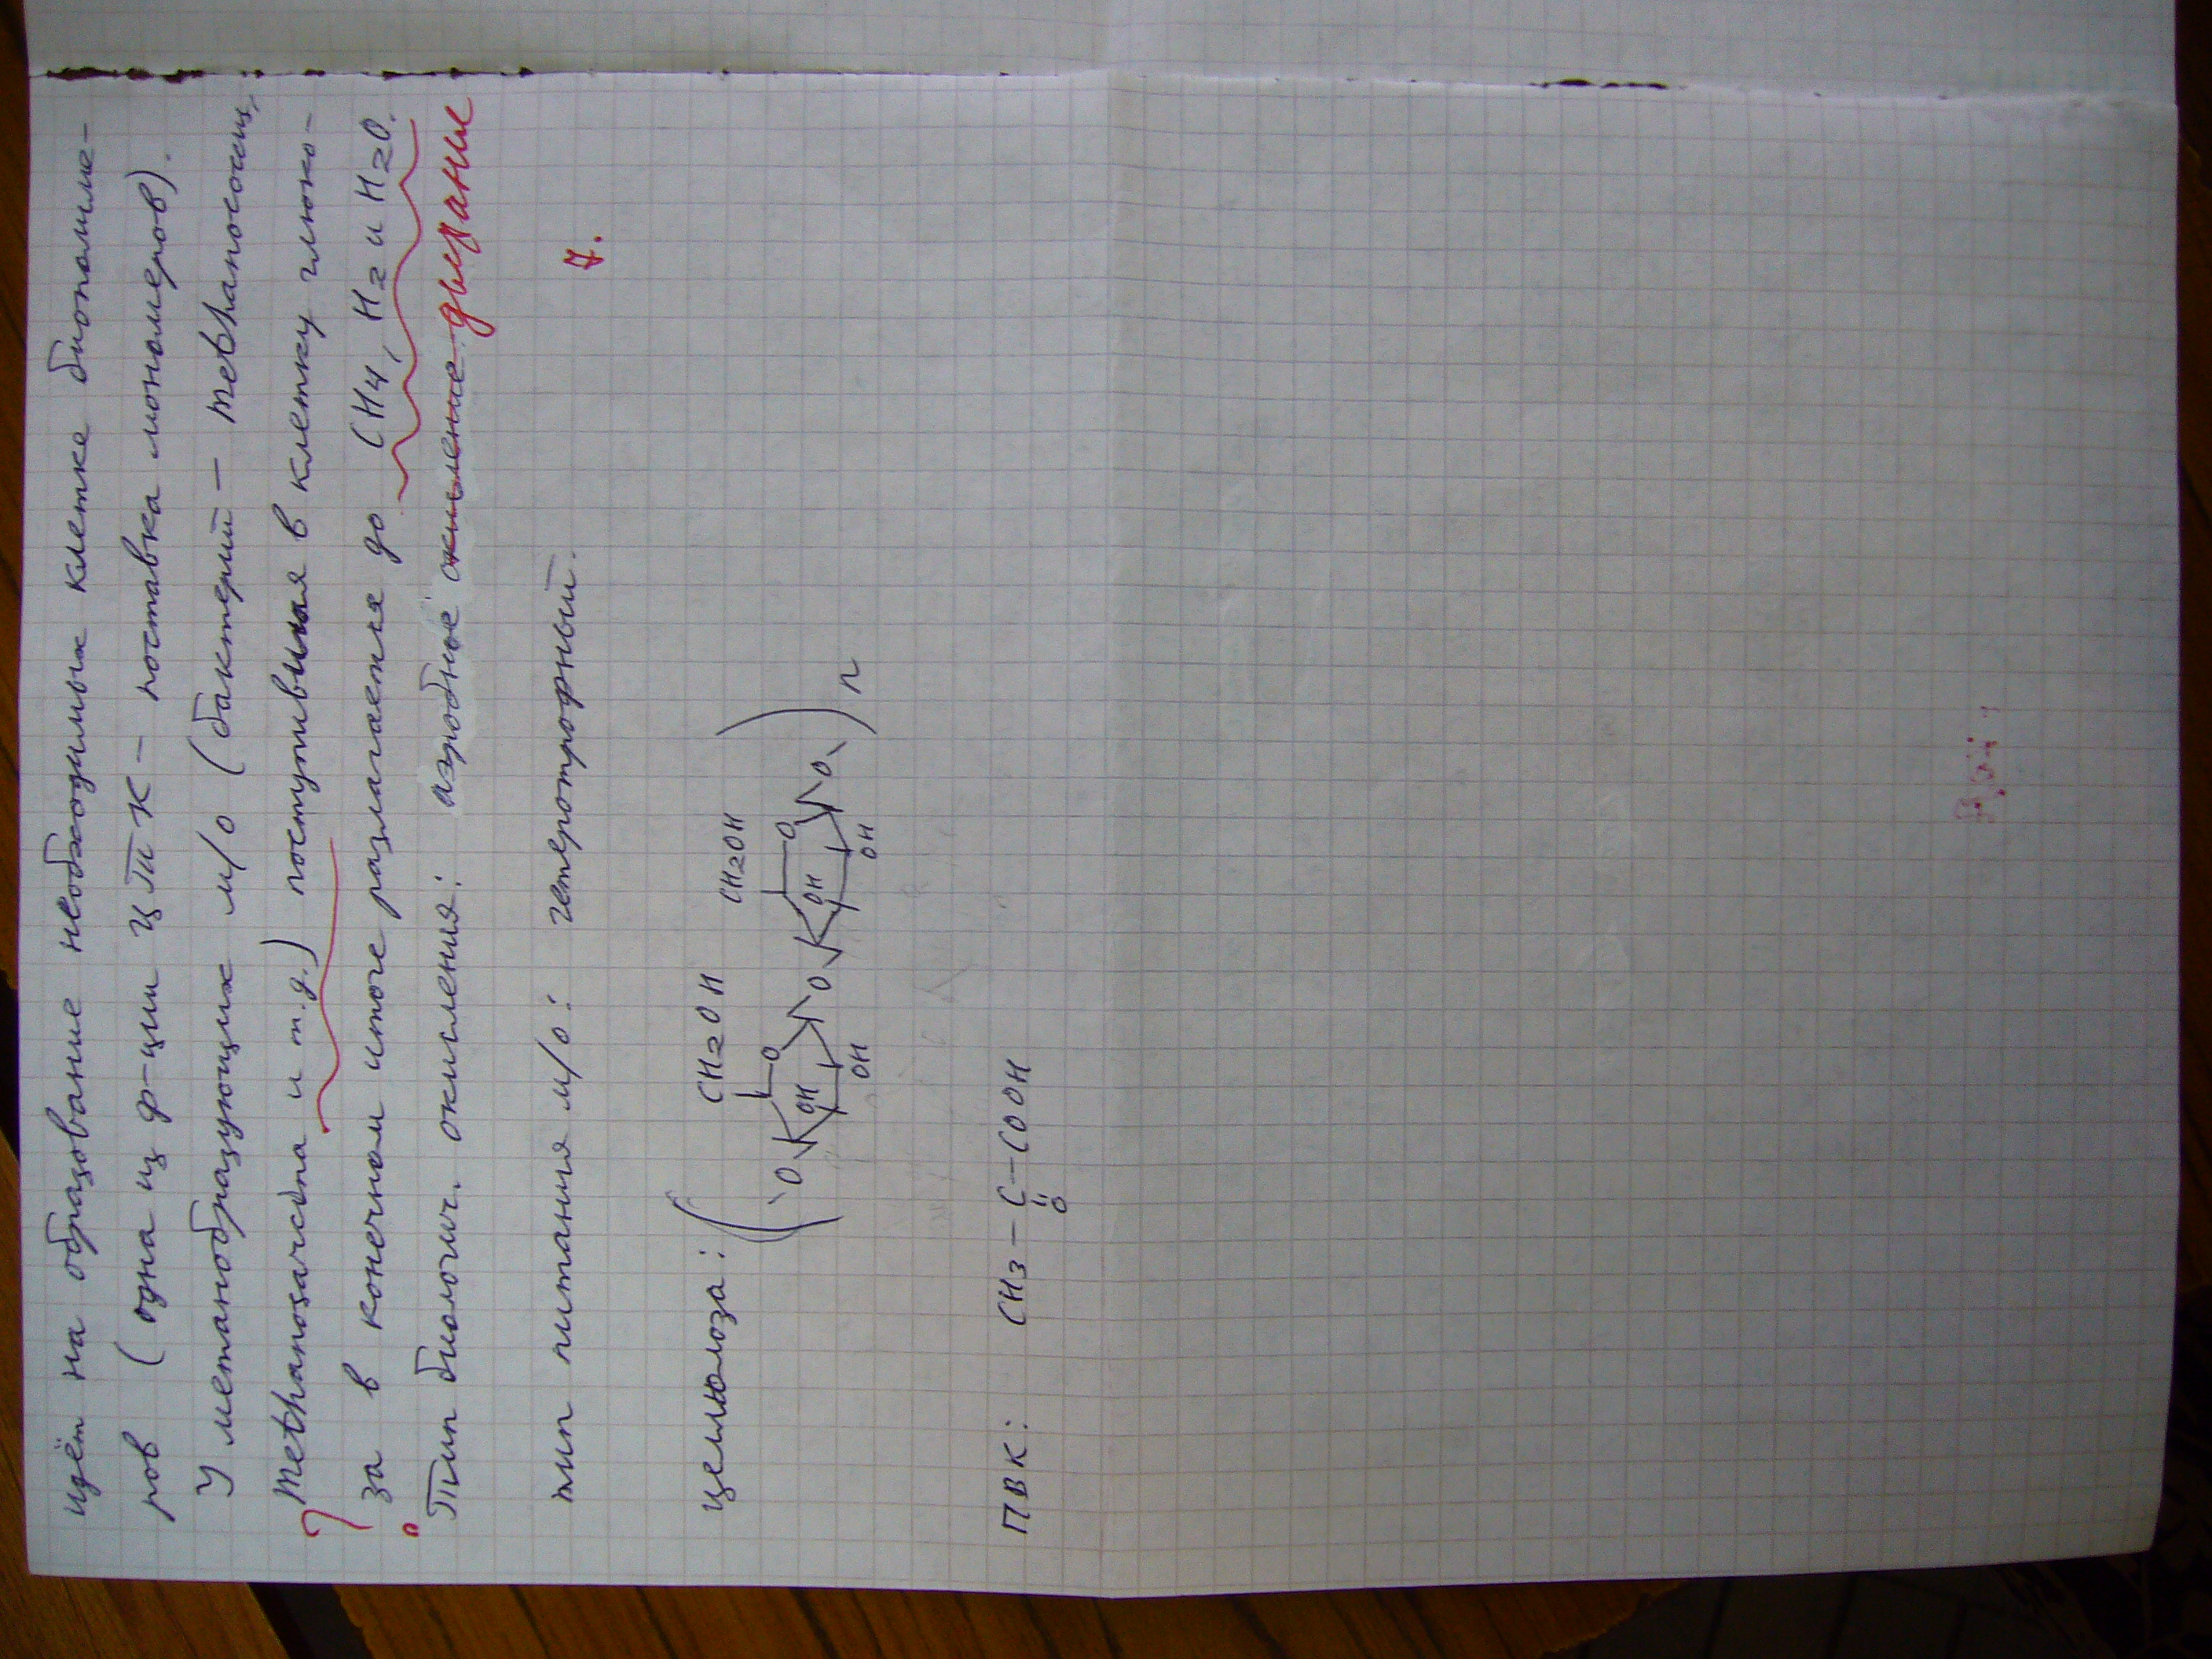 идёт на образование необходимых клетке биополиме-
ров (одна из ф-ции ЦТК - поставка мономеров).
У метанобразующих м/о (бактерий - Methanococcus,
Methanosarcina и т.д.) поступившая в клетку глюко-
? за в конечном итоге разлагается до CH4, H2 и H2O.
Тип биологич. окисления: аэробное окисление дыхание
тип питания м/о: гетеротрофный.
7.
целлюлоза: CH2OH CH2OH
( O OH O OH O OH O OH O ) n
ПВК: CH3 - C - COOH
O